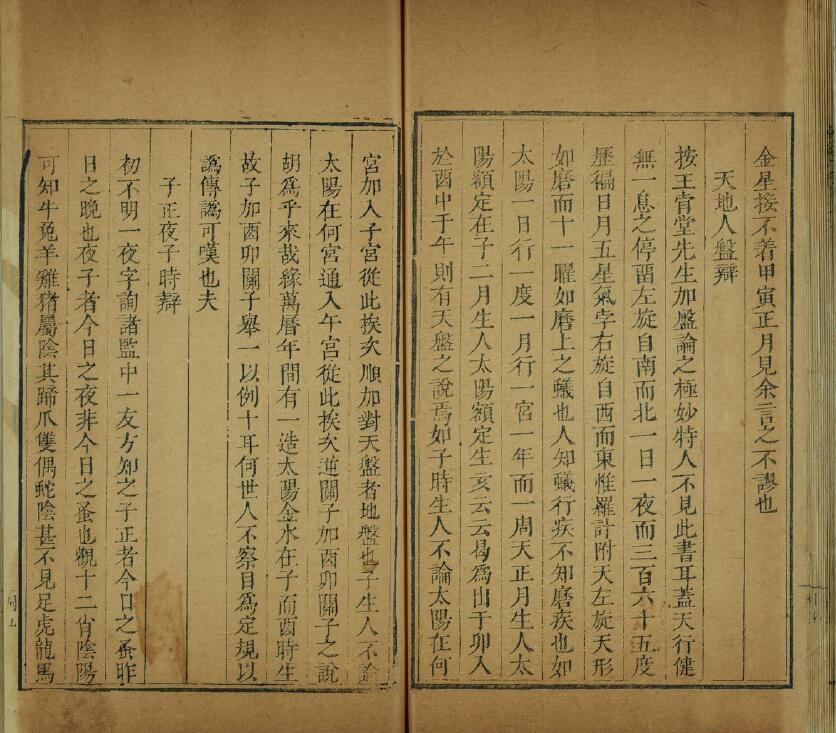 金星接不着甲寅正月見余言之不謬也
天地人盤辯
按王肯堂先生加盤論之極妙特人不見此書耳蓋天行健
無一息之停畱左旋自南而北一日一夜而三百六十五度
歷徧日月五星氣孛右旋自西而東惟羅計附天左旋天形
如磨而十一曜如磨上之蟻也人知蟻行疾不知磨疾也如
太陽一日行一度一月行一宮一年而一周天正月生人太
陽額定在子二月生人太陽額定生亥云云曷爲出于卯入
於酉中于午則有天盤之說焉如子時生人不論太陽在何
宮加入子宮從此挨次順加對天盤者地盤也子生人不論
太陽在何宮通入午宮從此挨次逆關子加酉卯關子之說
胡爲乎來哉緣萬曆年間有一造太陽金水在子而酉時生
故子加酉卯關子舉一以例十耳何世人不察目爲定規以
譌傳譌可嘆也夫
子正夜子時辯
初不明一夜字詢諸監中一友方知之子正者今日之蚤昨
日之晚也夜子者今日之夜非今日之蚤也觀十二肖陰陽
可知牛兔羊雞猪屬陰其蹄爪雙偶蛇陰甚不見足虎龍馬